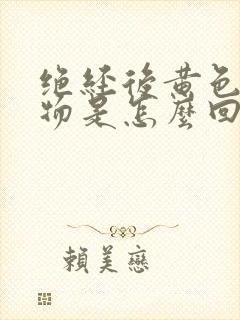 绝经後黄色
物是怎麼回
賴美戀